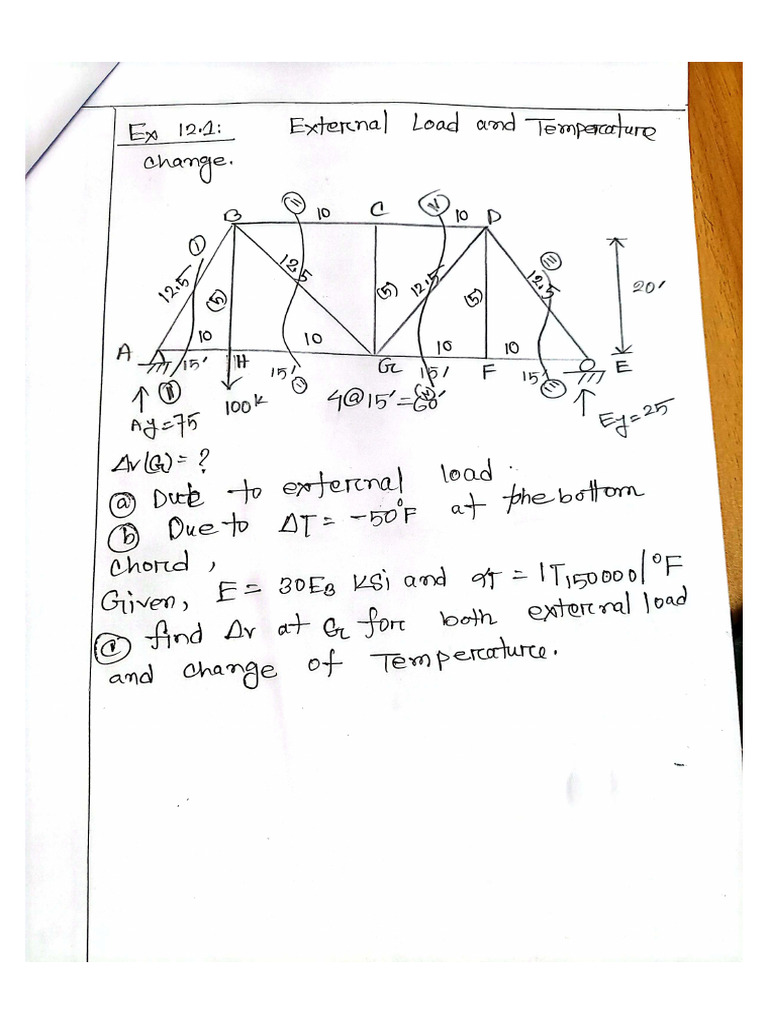 Ex 12.1: External Load and Temperature
change.
B 10 C 10 D
I II IV III
12.5 (5) 12.5 (5) 12.5 (5) 12.5
20'
A 10 H 10 G 10 F 10 E
15' 15' 15' 15'
100k 4@15'=60'
Ay=75 Ey=25
Δv(G)=?
(a) Due to external load.
(b) Due to ΔT = -50°F at the bottom
chord,
Given, E = 30E3 KSi and αT = 1T,150000/°F
find Δv at G for both external load
and change of Temperature.